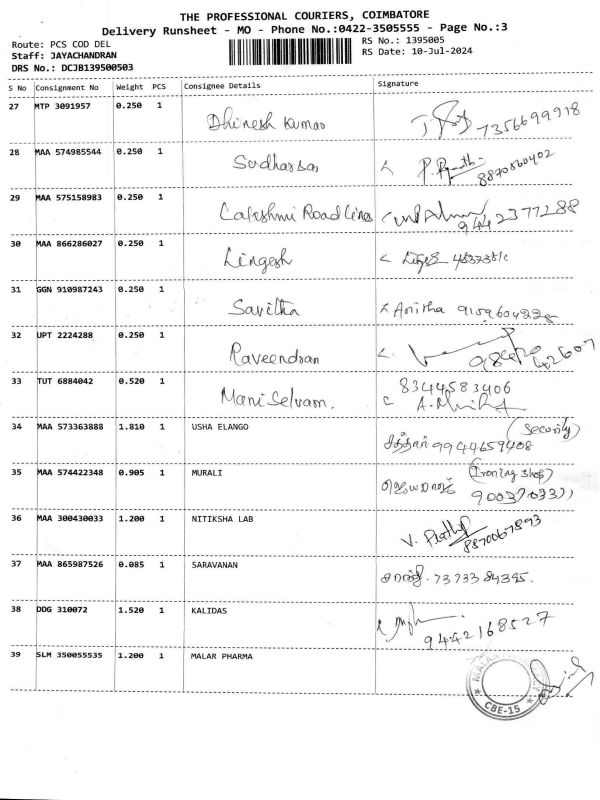 THE PROFESSIONAL COURIERS, COIMBATORE
Delivery Runsheet - MO - Phone No.:0422-3505555 - Page No.:3
Route: PCS COD DEL
RS No.: 1395005
Staff: JAYACHANDRAN
RS Date: 10-Jul-2024
DRS No.: DCJB139500503
S No Consignment No Weight PCS Consignee Details Signature
27 MTP 3091957 0.250 1 Dhinesh Kumar 7356699918
28 MAA 574985544 0.250 1 8870560402
29 MAA 575158983 0.250 1 Lakshmi Road Lines 9442377288
30 MAA 866286027 0.250 1 Lingesh
31 GGN 910987243 0.250 1 Savitha Anitha
32 UPT 2224288 0.250 1 Raveendran
33 TUT 6884042 0.520 1 Maniselvam. 8344583406
34 MAA 573363888 1.810 1 USHA ELANGO (Security)
9944659408
35 MAA 574422348 0.905 1 MURALI (Ironing shop)
36 MAA 300430033 1.200 1 NITIKSHA LAB 8870067893
37 MAA 865987526 0.085 1 SARAVANAN 7373384395.
38 DDG 310072 1.520 1 KALIDAS 9442168527
39 SLM 350055535 1.200 1 MALAR PHARMA
CBE-15